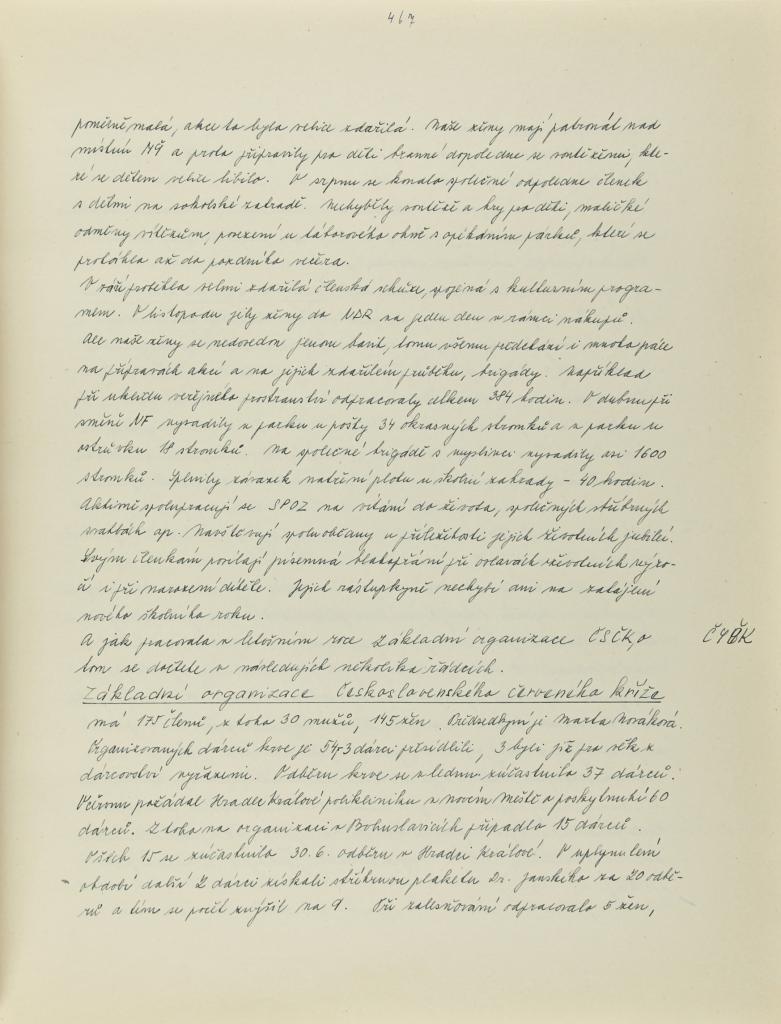 467
poměrně malá, akce to byla velice zdařilá. Naše ženy mají patronát nad
místní MŠ a proto připravily pro děti branné dopoledne se soutěžemi, kte-
ré se dětem velice líbilo. V srpnu se konalo společné odpoledne členek
s dětmi na sokolské zahradě. Nechyběly soutěže a hry pro děti, maličké
odměny vítězům, posezení u táborového ohně s opékáním párků, které se
protáhlo až do pozdního večera.
V září proběhla velmi zdařilá členská schůze, spojená s kulturním progra-
mem. V listopadu jely ženy do NDR na jeden den v rámci nákupů.
Ale naše ženy se nedovedou jenom bavit, tomu všemu předchází i mnoho práce
na přípravách akcí a na jejich zdařilém průběhu, brigády. Například
při úklidu veřejného prostranství odpracovaly celkem 384 hodin. V dubnu při
směně NF vysadily v parku u pošty 34 okrasných stromků a v parku u
ostrůvku 18 stromků. Na společné brigádě s myslivci vysadily asi 1600
stromků. Splnily závazek natření plotu u školní zahrady - 40 hodin.
Aktivně spolupracují se SPOZ na vítání do života, společných stříbrných
svatbách ap. Navštěvují spoluobčany u příležitosti jejich životních jubileí.
Svým členkám posílají písemná blahopřání při oslavách životních výro-
čí i při narození dítěte. Jejich zástupkyně nechybí ani na zahájení
nového školního roku.
A jak pracovala v letošním roce základní organizace ČSČK, o
ČSČK
tom se dočtete v následujích několika řádcích.
Základní organizace Československého červeného kříže
má 175 členů, z toho 30 mužů, 145 žen. Předsedkyní je Marta Nováková.
Organizovaných dárců krve je 54, 3 dárci přesídlili, 3 byli již pro věk z
dárcovství vyřazeni. Odběru krve se v lednu zúčastnilo 37 dárců.
Večronu požádal Hradec Králové polikliniku v Novém Městě o poskytnutí 60
dárců. Z toho na organizaci v Bohuslavicích připadlo 15 dárců.
Všech 15 se zúčastnilo 30.6. odběru v Hradci Králové. V uplynulém
období další 2 dárci získali stříbrnou plaketu Dr. Janského za 20 odbě-
rů a tím se počet zvýšil na 9. Při zalesňování odpracovalo 5 žen,